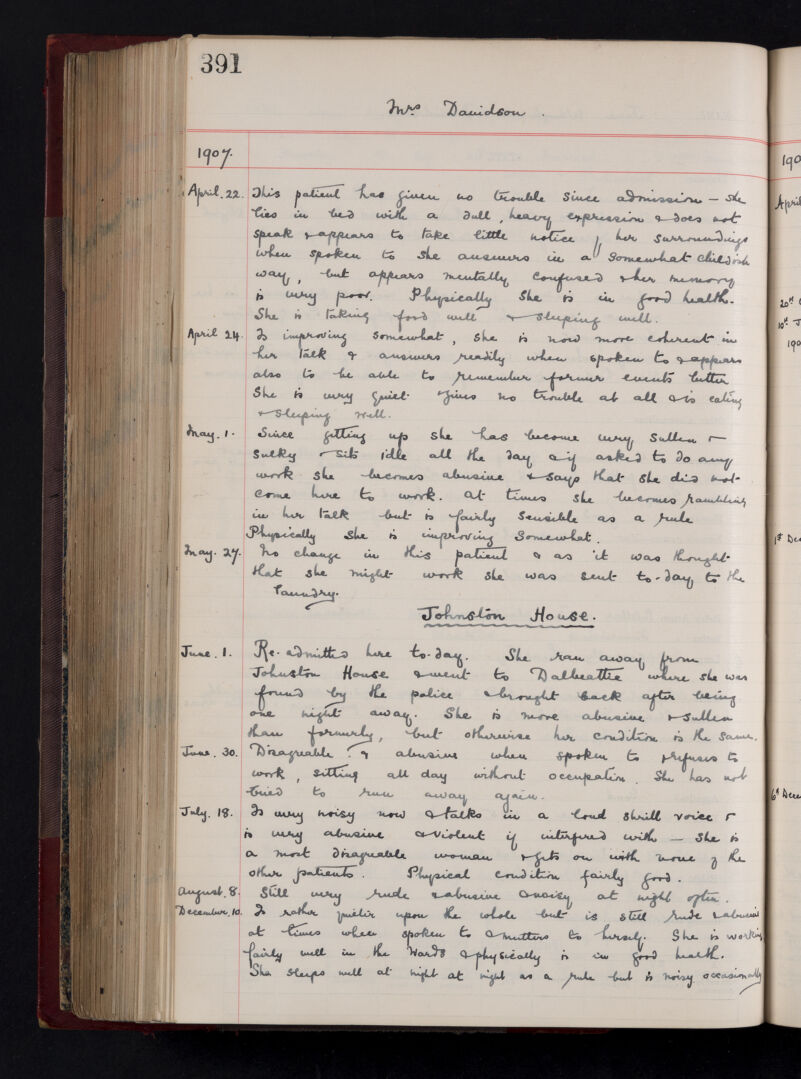 391
Mrs Davidson.
1907.
April. 22. This patient has given no trouble since admission – she
lies in bed with a dull, heavy expression & does not
speak & appears to take little notice of her surroundings
when spoken to she answers in a somewhat childish
way, but appears mentally confused & her memory
is very poor. Physically she is in good health.
She is taking food well & sleeping well.
April 24. Is improving somewhat, she is now more coherent in
her talk & answers readily when spoken to & appears
also to be able to remember former events better
She is very quiet & gives no trouble at all & is eating
& sleeping well.
May. 1. Since getting up she has become very sullen &
sulky & sits idle all the day & if asked to do any
work she becomes abusive & says that she did not
come here to work. At times she becomes rambling
in her talk but is fairly sensible as a rule
Physically she is improving somewhat.
May. 27. No change in this patient & as it was thought
that she might work she was sent to-day to the
laundry.
Johnston House.
June. 1. Re-admitted here to-day. She ran away from
Johnston House & went to Dalbeattie where she was
found by the police & brought back after being
one night away. She is more abusive & sullen
than formerly, but otherwise her condition is the same.
June. 30. Disagreable & abusive when spoken to & refuses to
work, sitting all day without occupation. She has not
tried to run away again.
July. 18. Is very noisy now & talks in a loud shrill voice &
is very abusive & violent if interfered with – She is
a most disagreable woman & gets on with none of the
other patients. Physical condition fairly good.
August. 8. Still very rude & abusive & noisy at night often.
December. 10. Is rather quieter upon the whole but is still rude & abusive
at times when spoken to & mutters to herself. She is working
fairly well in the wards & physically is in good health.
She sleeps well at night at night as a rule but is noisy occasionally
190
April
20th
10th J
190
1st Dec
6th Dece